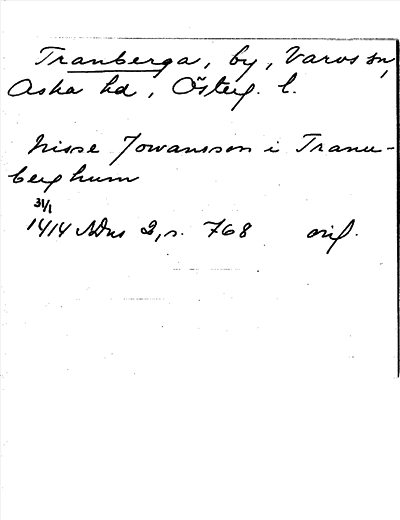 Tranberga, by, Varvs sn,
Aska hd, Österg. l.
Nisse Jowansson i Tranu-
berghum
31/1
1414 SDns 2, s. 768 orig.